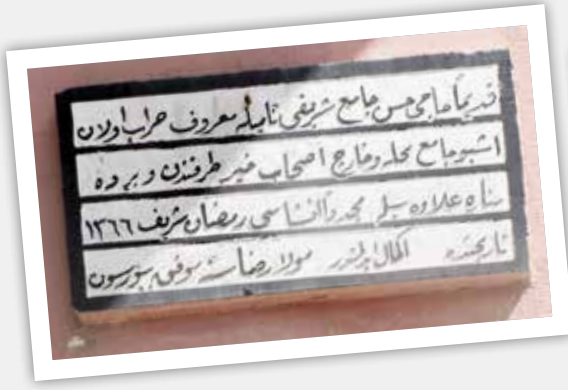 قديماً حاجى حسن جامع شريفى نامیله معروف خراب اولان
اشبو جامع محله و خارج اصحاب خير طرفندن و برده
مناره علاوه سيله مجدداً انشاسى رمضان شريف ١٣٦٦
تاريخنده اكمال ايدلمشدر مولا رضاسنه موفق بيورسون